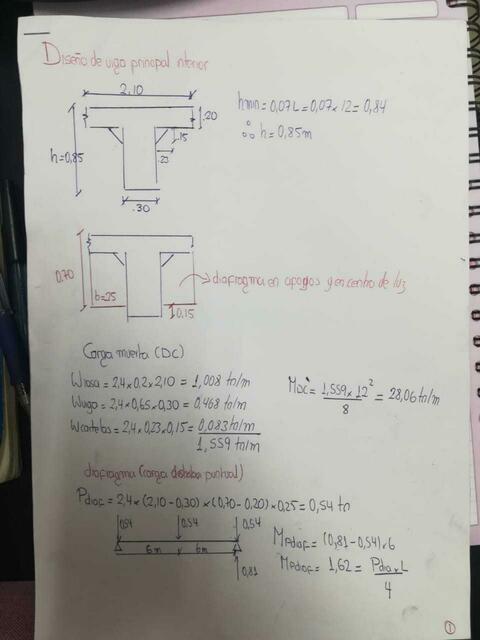 Diseño de viga principal interior
2.10
.20
.15
.23
h=0,85
.30
hmin=0,07L=0,07x12=0,84
∴ h=0,85m
0.70
b=.25
0.15
diafragma en apoyos y en centro de luz
Carga muerta (DC)
Wlosa=2,4x0,2x2,10=1,008 tn/m
Wviga=2,4x0,65x0,30=0,468 tn/m
Wcartelas=2,4x0,23x0,15=0,083 tn/m
1,559 tn/m
MDC=1,559x12²/8=28,06 tn/m
diafragma (carga puntual)
Pdiaf=2,4x(2,10-0,30)x(0,70-0,20)x0,25=0,54 tn
0,54 0,54 0,54
6m 6m
0,81
MPdiaf=(0,81-0,54)x6
MPdiaf=1,62=Pdiaf x L/4
1